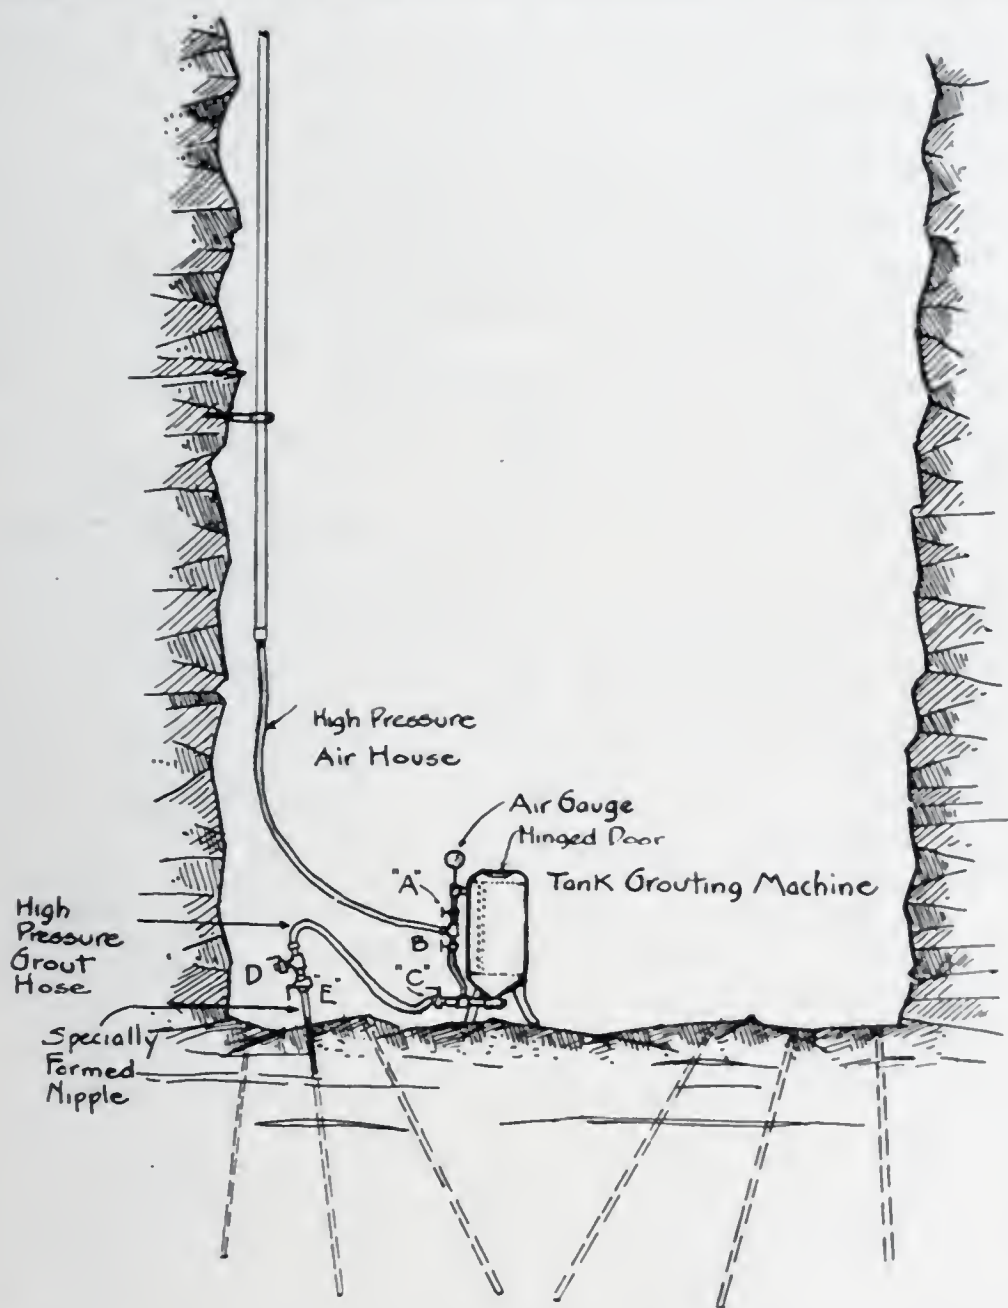 High Pressure
Air House
Air Gauge
Hinged Door
"A"
Tank Grouting Machine
B
High
Pressure
Grout
Hose
D
"E"
"C"
Specially
Formed
Nipple